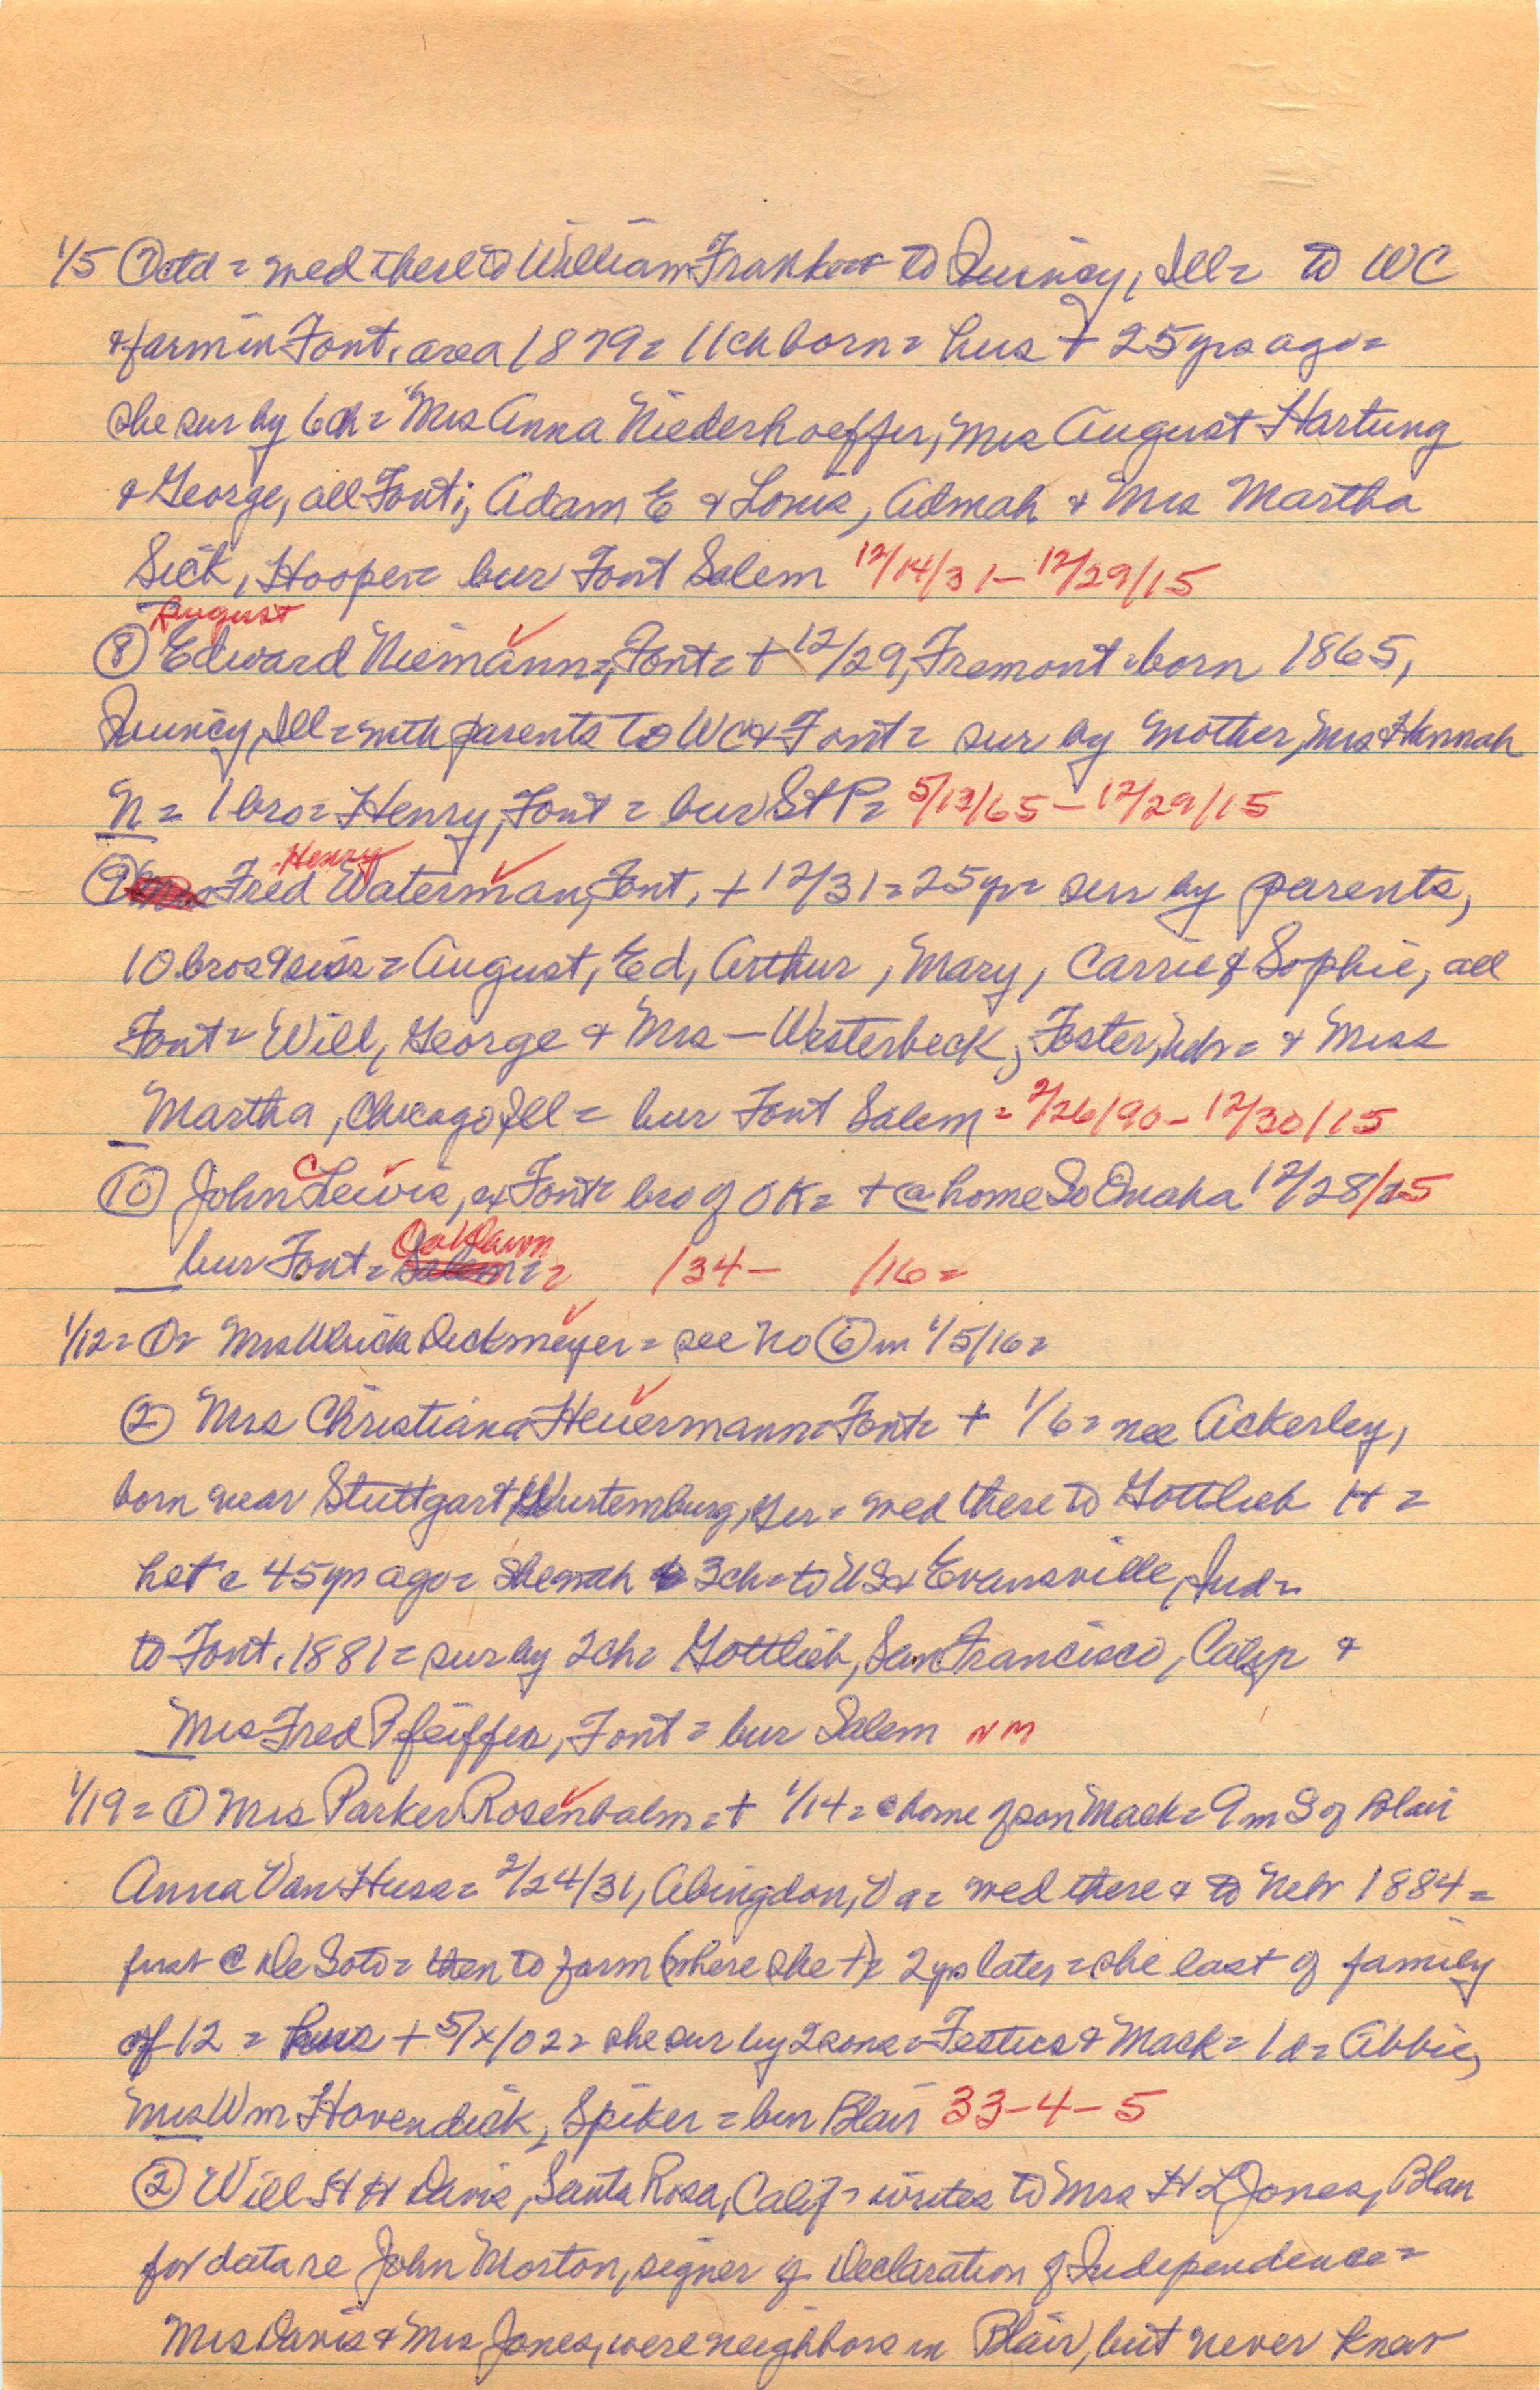 1/5 ⑦ctd = wed there to William Frank == to Quincy, Ill = to WC
& farm in Font. area 1879 = 11 ch born = hus + 25 yrs ago =
she sur by 6 ch = Mrs Anna Niederhoeffer, Mrs August Hartung
& George, all Font; Adam E & Louis, Admah & Mrs Martha
Sick, Hooper = bur Font Salem 12/14/31 – 12/29/15
August
⑧ Edward Niemann =, Font = + 12/29, Fremont = born 1865,
Quincy, Ill = with parents to WC & Font = sur by mother, Mrs Hannah
N = 1 bro = Henry, Font = bur St P = 5/13/65 – 12/29/15
Henry
⑨ Fred Waterman, Font, + 12/31 = 25 yr = sur by parents,
10 bros & siss = August, Ed, Arthur, Mary, Carrie & Sophie, all
Font = Will, George & Mrs — Westerbeck, Foster, Nebr = & Miss
Martha, Chicago, Ill = bur Font Salem = 2/26/90 – 12/30/15
⑩ John C Lewis, ex Font = bro of OK = + @ home So Omaha 12/28/15
Oak Lawn
bur Font = Salem = = /34 – /16 =
1/12 = ① = Mrs Ulrick Dickmeyer = see No ⑥ in 1/5/16 =
② Mrs Christiana Heuermann = Font = + 1/6 = nee Ackerley,
born near Stuttgart, Wurtemburg, Ger = wed there to Gottlieb H =
he + c 45 yrs ago = she with 3 ch = to US & Evansville, Ind =
to Font. 1881 = sur by 2 ch = Gottlieb, San Francisco, Calif &
Mrs Fred Pfeiffer, Font = bur Salem NM
1/19 = ① Mrs Parker Rosenbalm = + 1/14 = @ home of son Mack = 9 m S of Blair
Anna Van Huss = 2/24/31, Abingdon, Va = wed there & to Nebr 1884 =
first @ De Soto = then to farm (where she +) = 2 yrs later = she last of family
of 12 = hus + 5/x/02 = she sur by 2 sons = Festus & Mack = 1 d = Abbie,
Mrs Wm Hovendick, Spiker = bur Blair 33-4-5
② Will H H Davis, Santa Rosa, Calif = writes to Mrs H L Jones, Blair
for data re John Morton, signer of Declaration of Independence =
Mrs Davis & Mrs Jones, were neighbors in Blair, but never knew